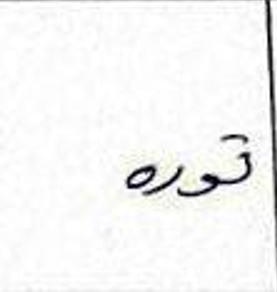 توره